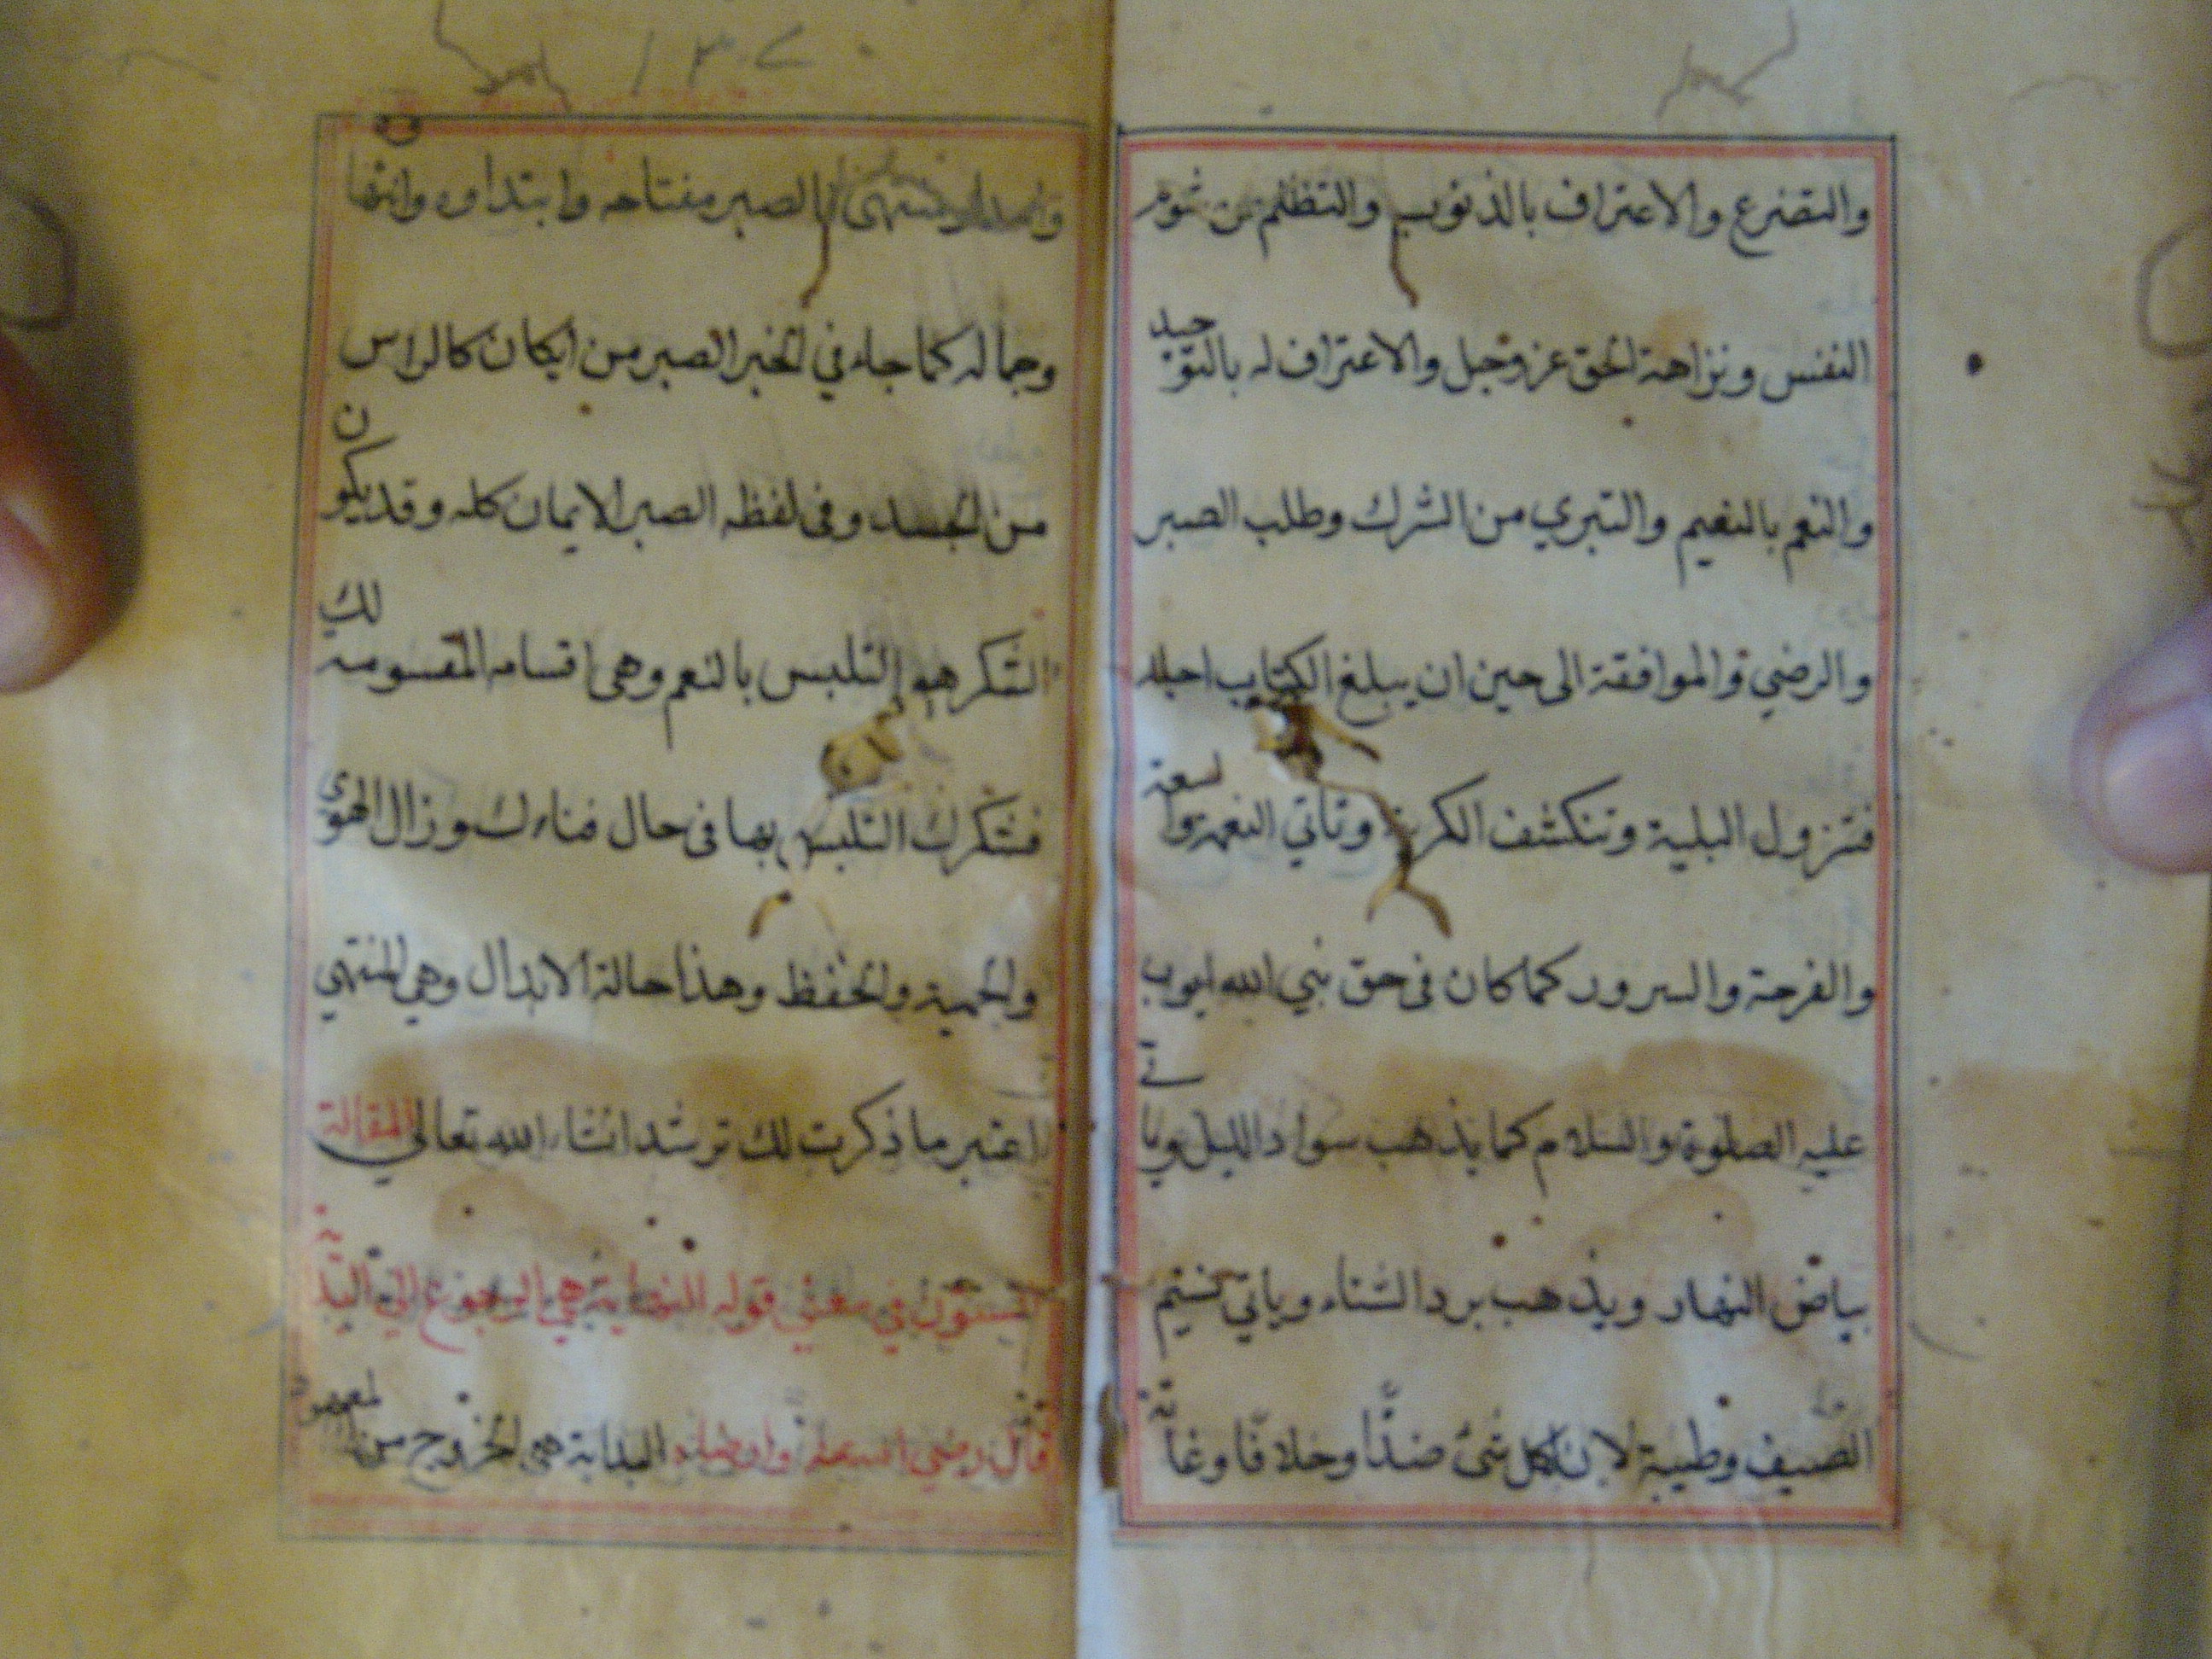 والتضرع والاعتراف بالذنوب والتظلم من شوم
النفس ونزاهة الحق عز وجل والاعتراف له بالتوحيد
والنعم بالنعيم والتبري من الشرك وطلب الصبر
والرضي والموافقة الى حين ان يبلغ الكتاب اجله
فتزول البلية وتنكشف الكربة وتاتي النعمة والسعة
والفرحة والسرور كما كان في حق نبي الله ايوب
عليه الصلوة والسلام كما يذهب سواد الليل وياتي
بياض النهار ويذهب برد الشتاء وياتي نسيم
الصيف وطيبة لان لكل شئ ضدًّا وخلافًا وغاية
١٣٧
منتهى بالصبر مفتاحه وابتداوه وانتها
وجماله كما جاء في الخبر الصبر من ايكان كالراس
من الجسد وفى لفظه الصبر الايمان كله وقد يكون
الشكر هو التلبس بالنعم وهى اقسامه المقسومه لك
فشكرك التلبس بها فى حال فناءك وزوال الهوى
والحمية والحفظ وهذا حالة الابدال وهي المنتهي
اعتبر ما ذكرت لك ترشد انشاء الله تعالي المقالة
الستون في معنى قوله النهاية هي الرجوع الى البداية
قال رضي الله عنه وارضاه البداية هى الخروج من المعهود